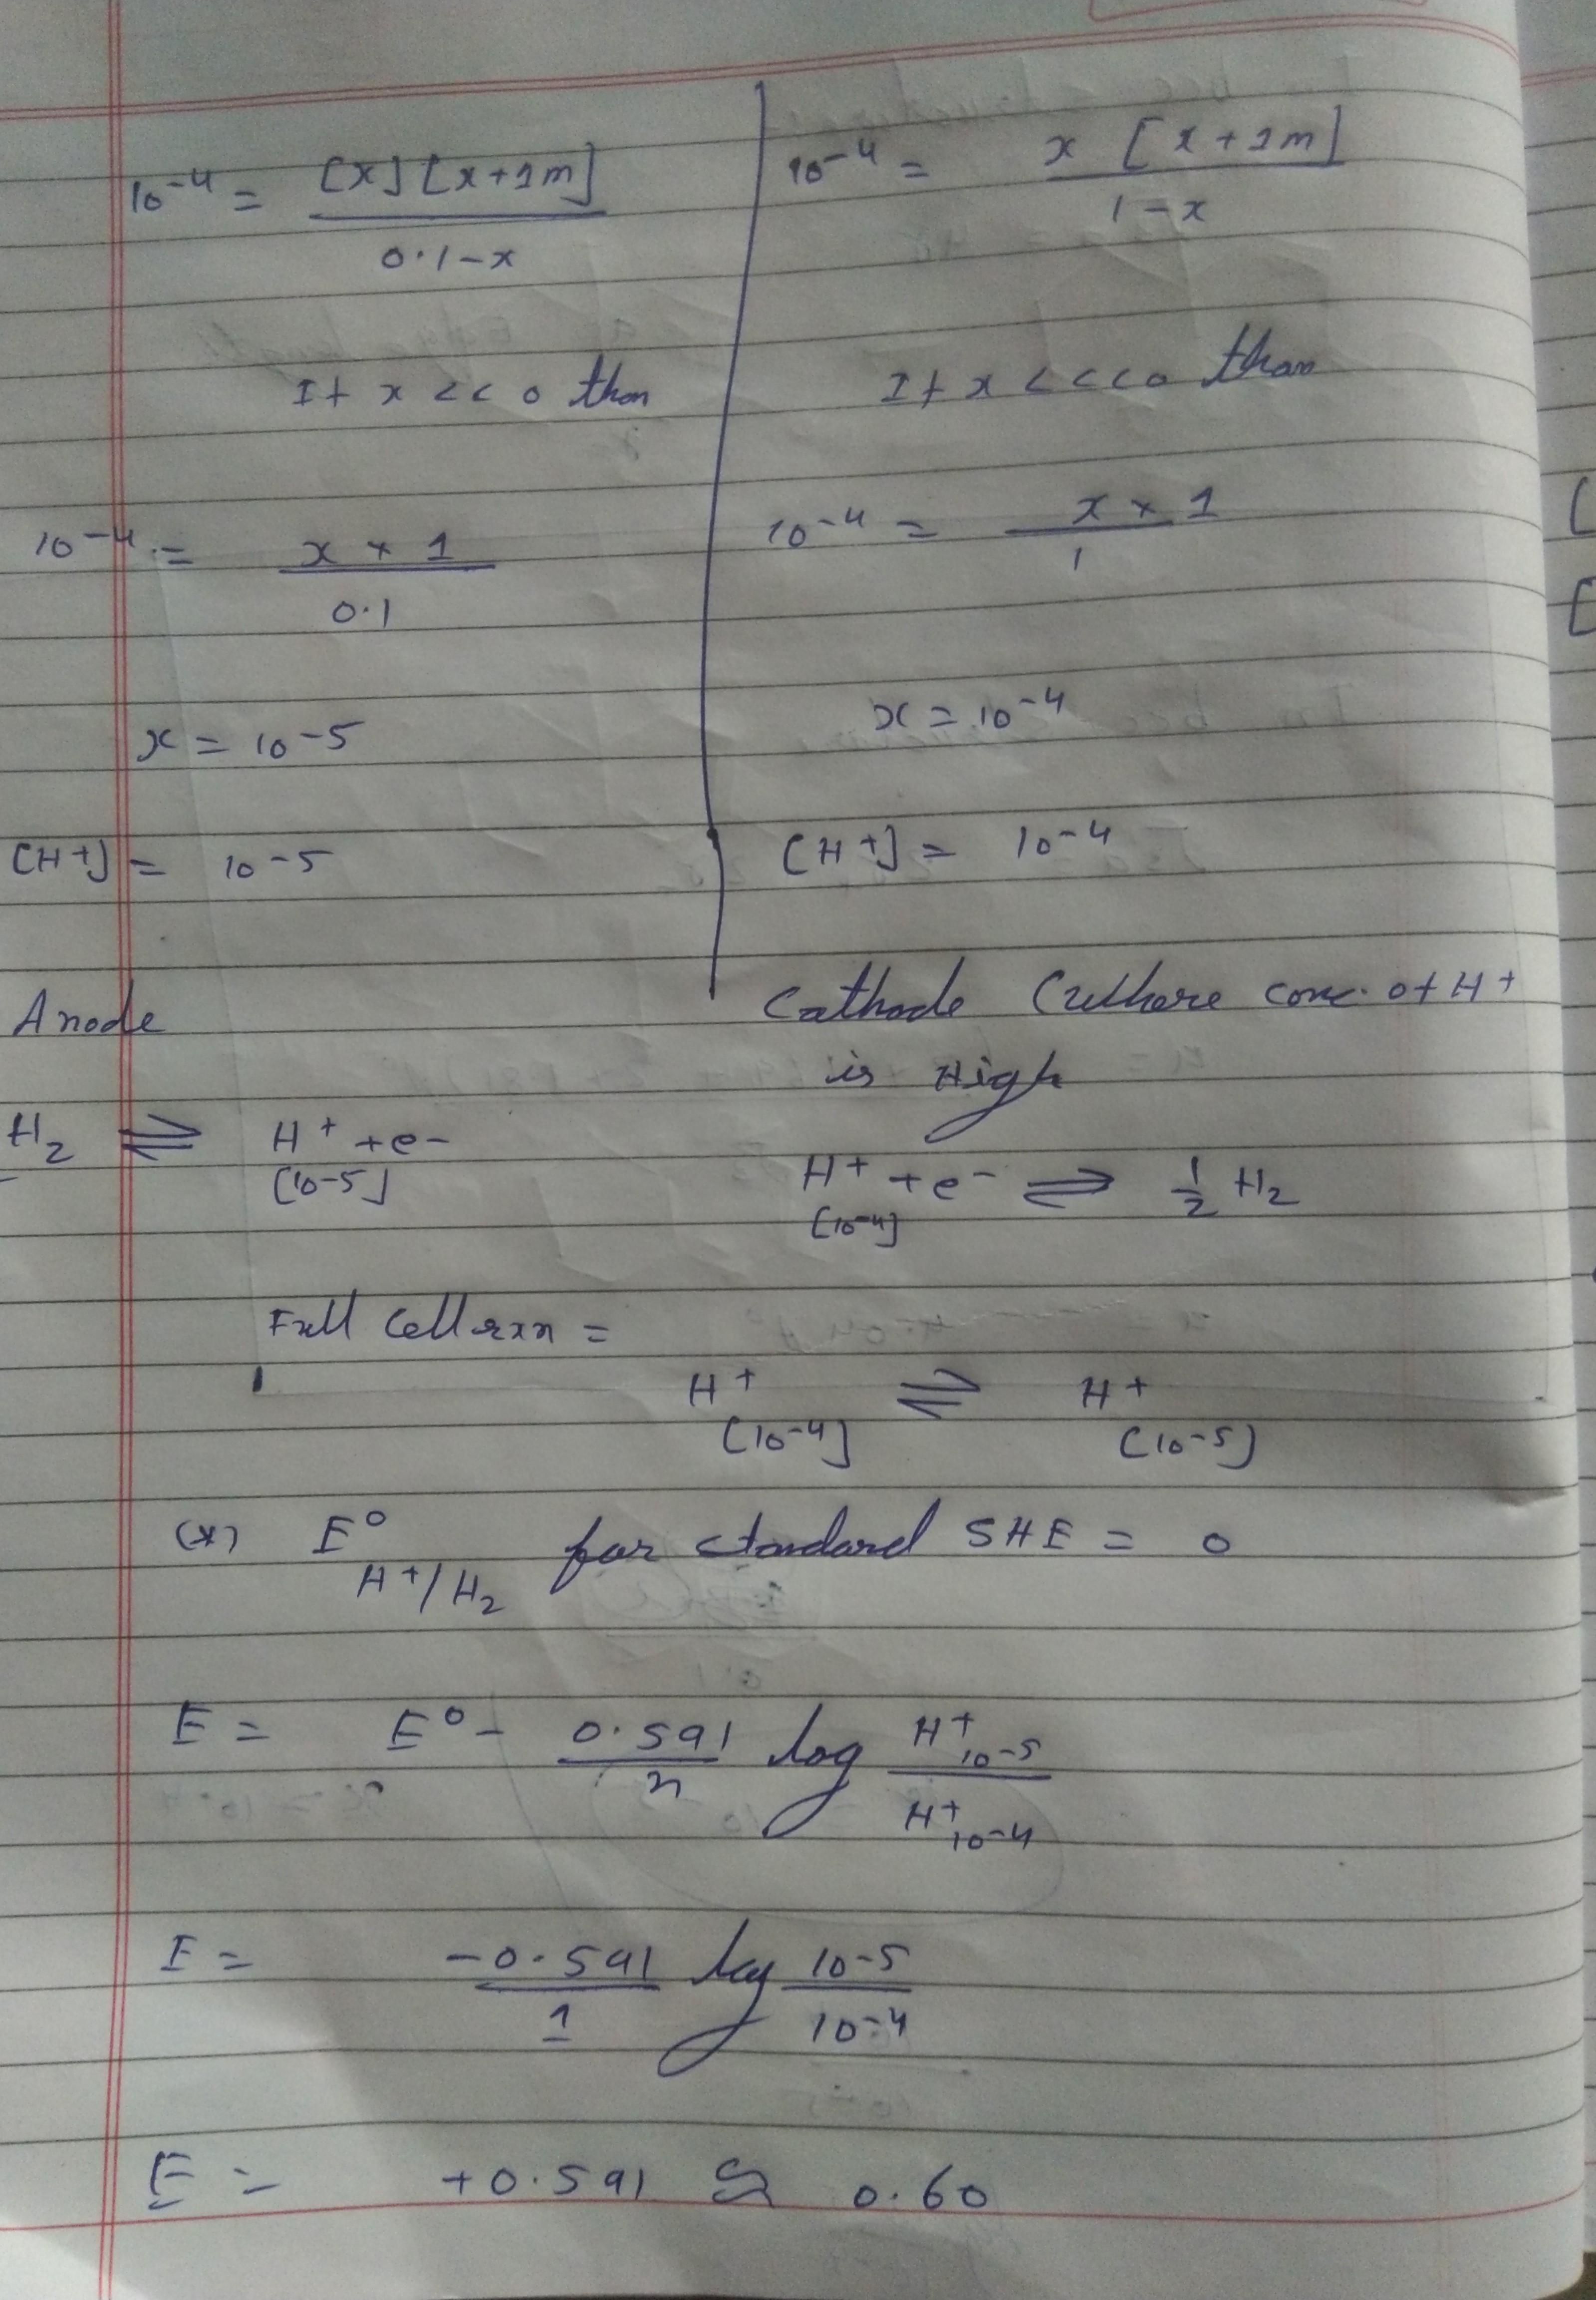 10-4 = [x] [x+1m]
0.1-x
If x << 0 then
10-4 = x × 1
0.1
x = 10-5
[H+] = 10-5
Anode
H2 ⇌ H+ + e-
[10-5]
10-4 = x [x+1m]
1-x
If x <<< 0 than
10-4 = x × 1
1
x = 10-4
[H+] = 10-4
Cathode (where conc. of H+
is High
H+ + e- ⇌ 1/2 H2
[10-4]
Full Cell rxn =
H+ ⇌ H+
[10-4] (10-5)
(*) E° H+/H2 for standard SHE = 0
E = E° - 0.591/n log H+10-5 / H+10-4
E = -0.591/1 log 10-5/10-4
E = +0.591 ≈ 0.60